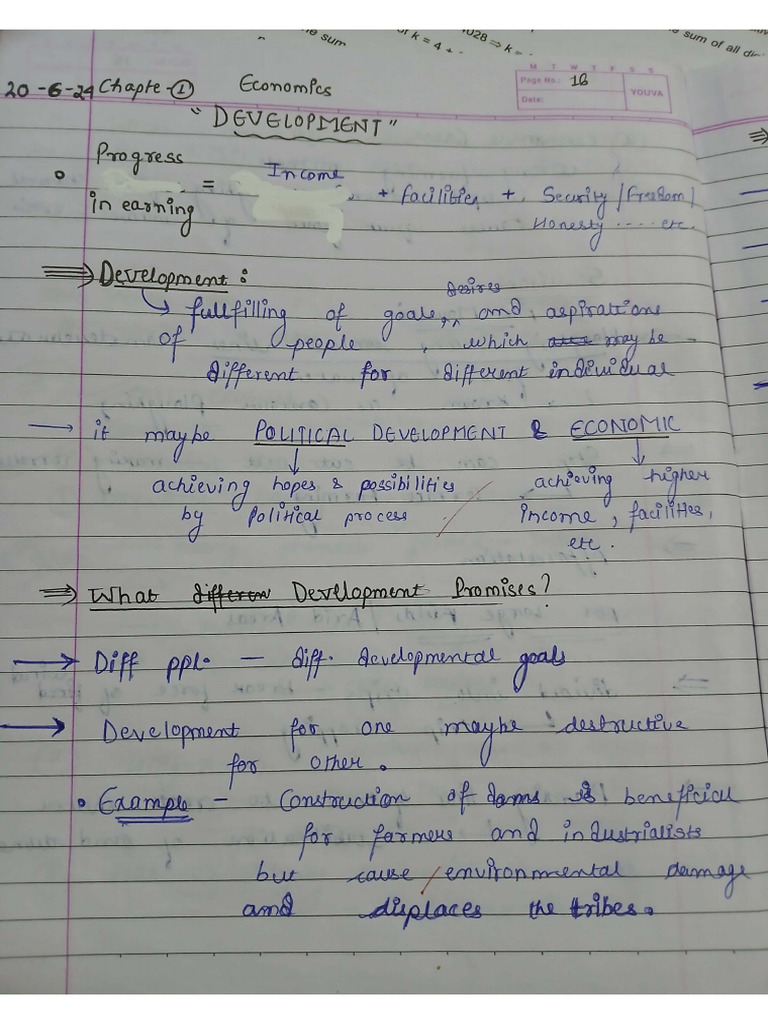 he sum
of k = 4 +
1028 ⇒ k =
e sum of all di
M T W T F S S
Page No.: 1B
Date:
YOUVA
20-6-24 Chapte-① Economics
"DEVELOPMENT"
• Progress in earning = Income + facilities + Security / Freedom / Honesty ..... etc.
⇒ Development :
desires
↳ fullfilling of goals,, and, aspirations
of people , which may be
different for different individual
→ it maybe POLITICAL DEVELOPMENT & ECONOMIC
↓ ↓
achieving hopes & possibilities by Political process
achieving higher income, facilities, etc.
⇒ What differen Development Promises?
→ Diff ppl. – diff. developmental goals
→ Development for one maybe destructive
for other.
• Example – Construction of dams is beneficial
for farmers and industrialists
but cause / environmental damage
and displaces the tribes.